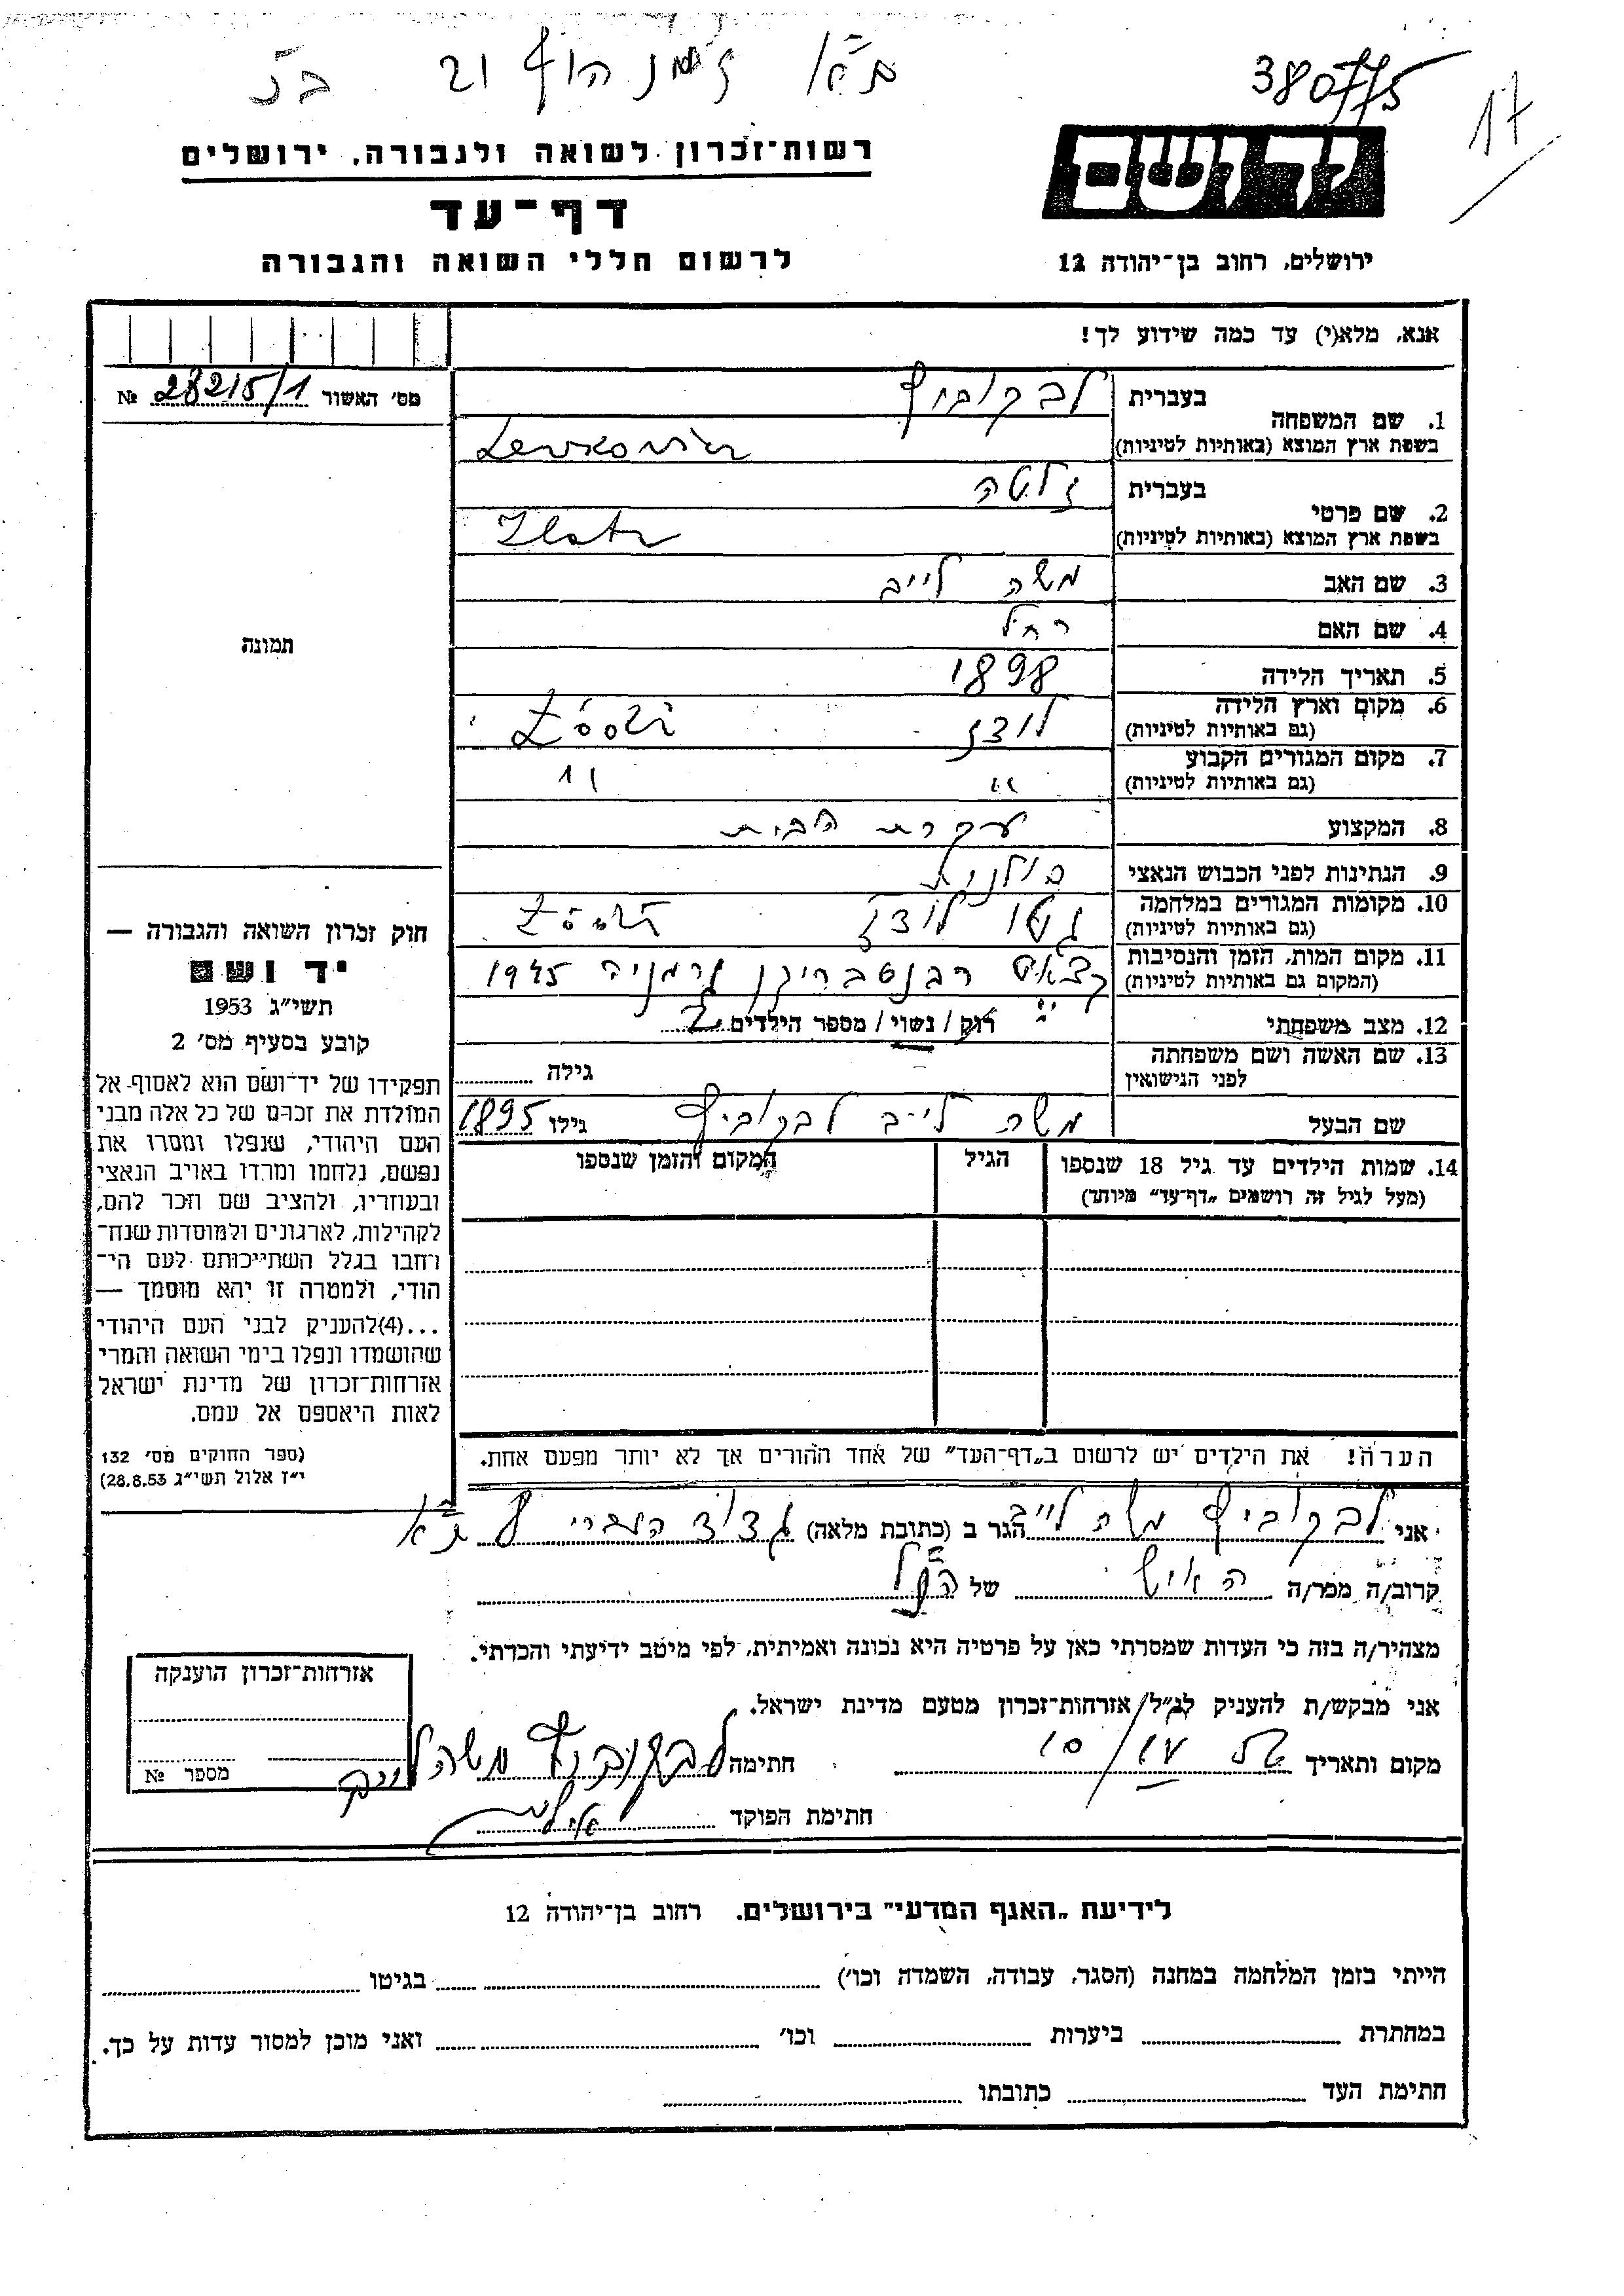 ת״א זלמנהוף 21 ב׳
380775
17
רשות־זכרון לשואה ולגבורה, ירושלים
דף־עד
לרשום חללי השואה והגבורה
יד ושם
ירושלים, רחוב בן־יהודה 12
אנא, מלא(י) עד כמה שידוע לך!
מס׳ האשור 28215/1 №
תמונה
1. שם המשפחה בעברית לבקוביץ
בשפת ארץ המוצא (באותיות לטיניות) Lewkowicz
2. שם פרטי בעברית זלטה
בשפת ארץ המוצא (באותיות לטיניות) Zlata
3. שם האב משה לייב
4. שם האם רחל
5. תאריך הלידה 1898
6. מקום וארץ הלידה (גם באותיות לטיניות) לודז Łódź
7. מקום המגורים הקבוע (גם באותיות לטיניות) " "
8. המקצוע עקרת הבית
9. הנתינות לפני הכבוש הנאצי פולנית
10. מקומות המגורים במלחמה (גם באותיות לטיניות) גטו לודז Łódź
11. מקום המות, הזמן והנסיבות (המקום גם באותיות לטיניות) קצאט רבנסבריגן גרמניה 1945
12. מצב משפחתי רוק / נשוי / מספר הילדים 2
13. שם האשה ושם משפחתה לפני הנישואין גילה
שם הבעל משה לייב לבקוביץ גילו 1895
14. שמות הילדים עד גיל 18 שנספו הגיל המקום והזמן שנספו
(מעל לגיל זה רושמים „דף־עד״ מיוחד)
הערה! את הילדים יש לרשום ב„דף־העד״ של אחד ההורים אך לא יותר מפעם אחת.
חוק זכרון השואה והגבורה —
יד ושם
תשי״ג 1953
קובע בסעיף מס׳ 2
תפקידו של יד־ושם הוא לאסוף אל
המולדת את זכרם של כל אלה מבני
העם היהודי, שנפלו ומסרו את
נפשם, נלחמו ומרדו באויב הנאצי
ובעוזריו, ולהציב שם וזכר להם,
לקהילות, לארגונים ולמוסדות שנח־
רחבו בגלל השתייכותם לעם הי־
הודי, ולמטרה זו יהא מוסמך —
...(4)להעניק לבני העם היהודי
שהושמדו ונפלו בימי השואה והמרי
אזרחות־זכרון של מדינת ישראל
לאות היאספם אל עמם.
(ספר החוקים מס׳ 132
י״ז אלול תשי״ג 28.8.53)
אני לבקוביץ משה לייב הגר ב (כתובת מלאה) גדוד העברי ת״א
קרוב/ה מכר/ה האיש של הנ״ל
מצהיר/ה בזה כי העדות שמסרתי כאן על פרטיה היא נכונה ואמיתית, לפי מיטב ידיעתי והכרתי.
אני מבקש/ת להעניק לנ״ל/ אזרחות־זכרון מטעם מדינת ישראל.
מקום ותאריך חתימה לבקוביץ משה לייב
חתימת הפוקד
אזרחות־זכרון הוענקה
מספר №
לידיעת „האגף המדעי״ בירושלים, רחוב בן־יהודה 12
הייתי בזמן המלחמה במחנה (הסגר, עבודה, השמדה וכו׳) בגיטו
במחתרת ביערות וכו׳ ואני מוכן למסור עדות על כך.
חתימת העד כתובתו